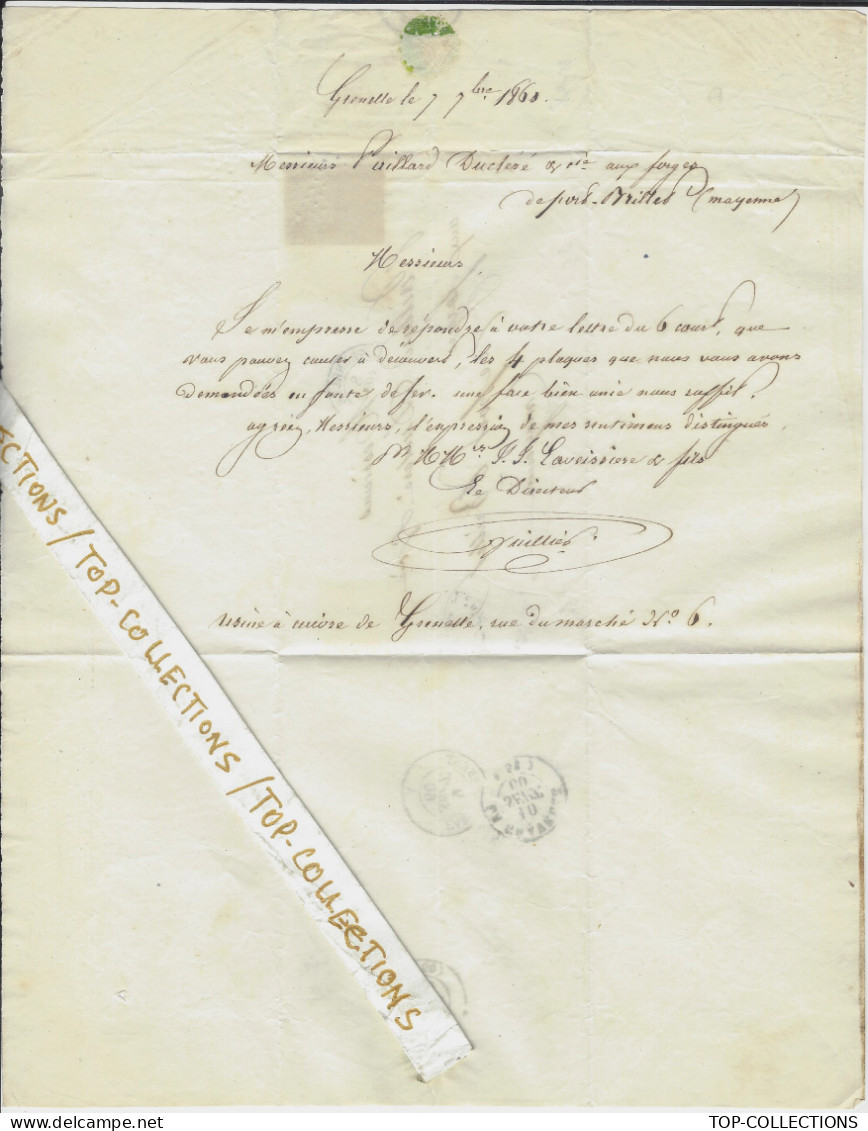 Grenelle le 7 7bre 1860.
Messieurs Paillard Ducléré & Cie aux forges
de port-Brillet (mayenne)
Messieurs,
Je m'empresse de répondre à votre lettre du 6 court, que
vous pouvez couler à découvert, les 4 plaques que nous vous avons
demandées en fonte de fer. une face bien unie nous suffit.
agréez, Messieurs, l'expression de mes sentimens distingués.
Pr MMrs J. J. Laveissiere & fils
Le Directeur
usine à cuivre de Grenelle, rue du marché No 6.
ECTIONS / TOP-COLLECTIONS / TOP-COLLECTIONS
TOP-COLLECTIONS